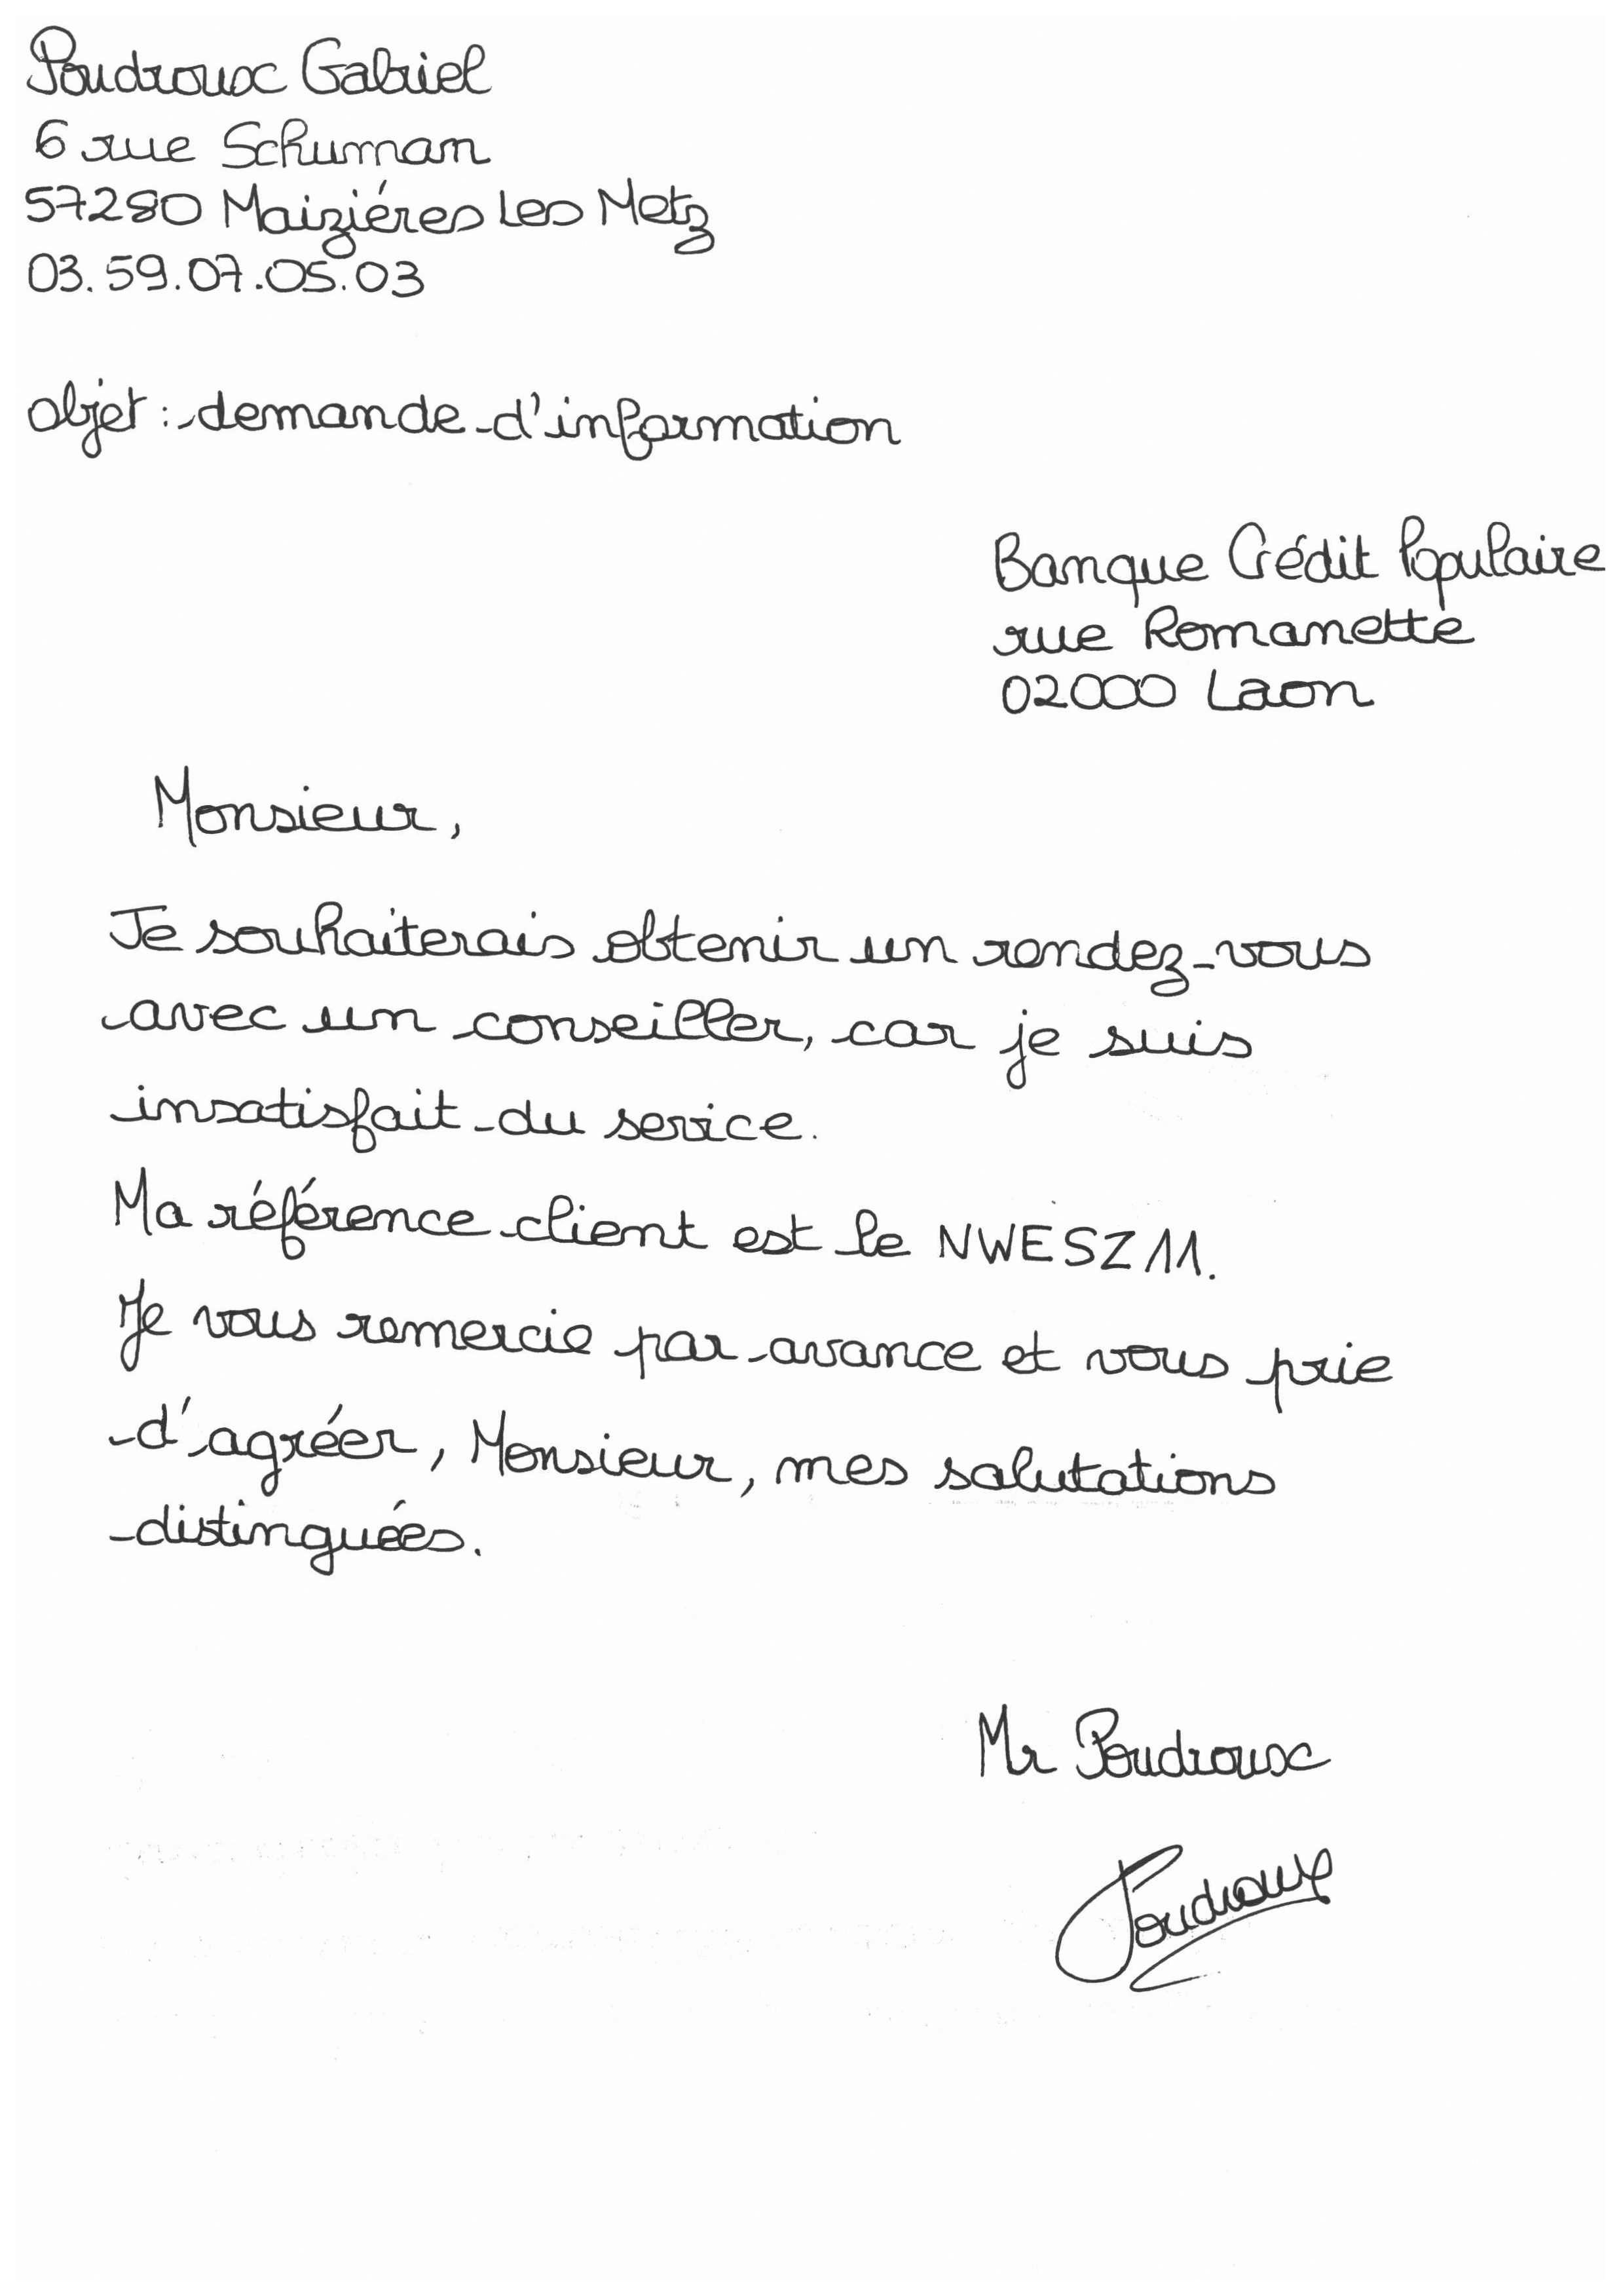 Poudroux Gabriel
6 rue Schuman
57280 Maiziéres Les Metz
03.59.07.05.03
objet : demande d'information
Banque Crédit Populaire
rue Romanette
02000 Laon
Monsieur,
Je souhaiterais obtenir un rendez-vous
avec un conseiller, car je suis
insatisfait du service.
Ma référence client est le NWESZ11.
Je vous remercie par avance et vous prie
d'agréer, Monsieur, mes salutations
distinguées.
Mr Poudroux
Poudroux